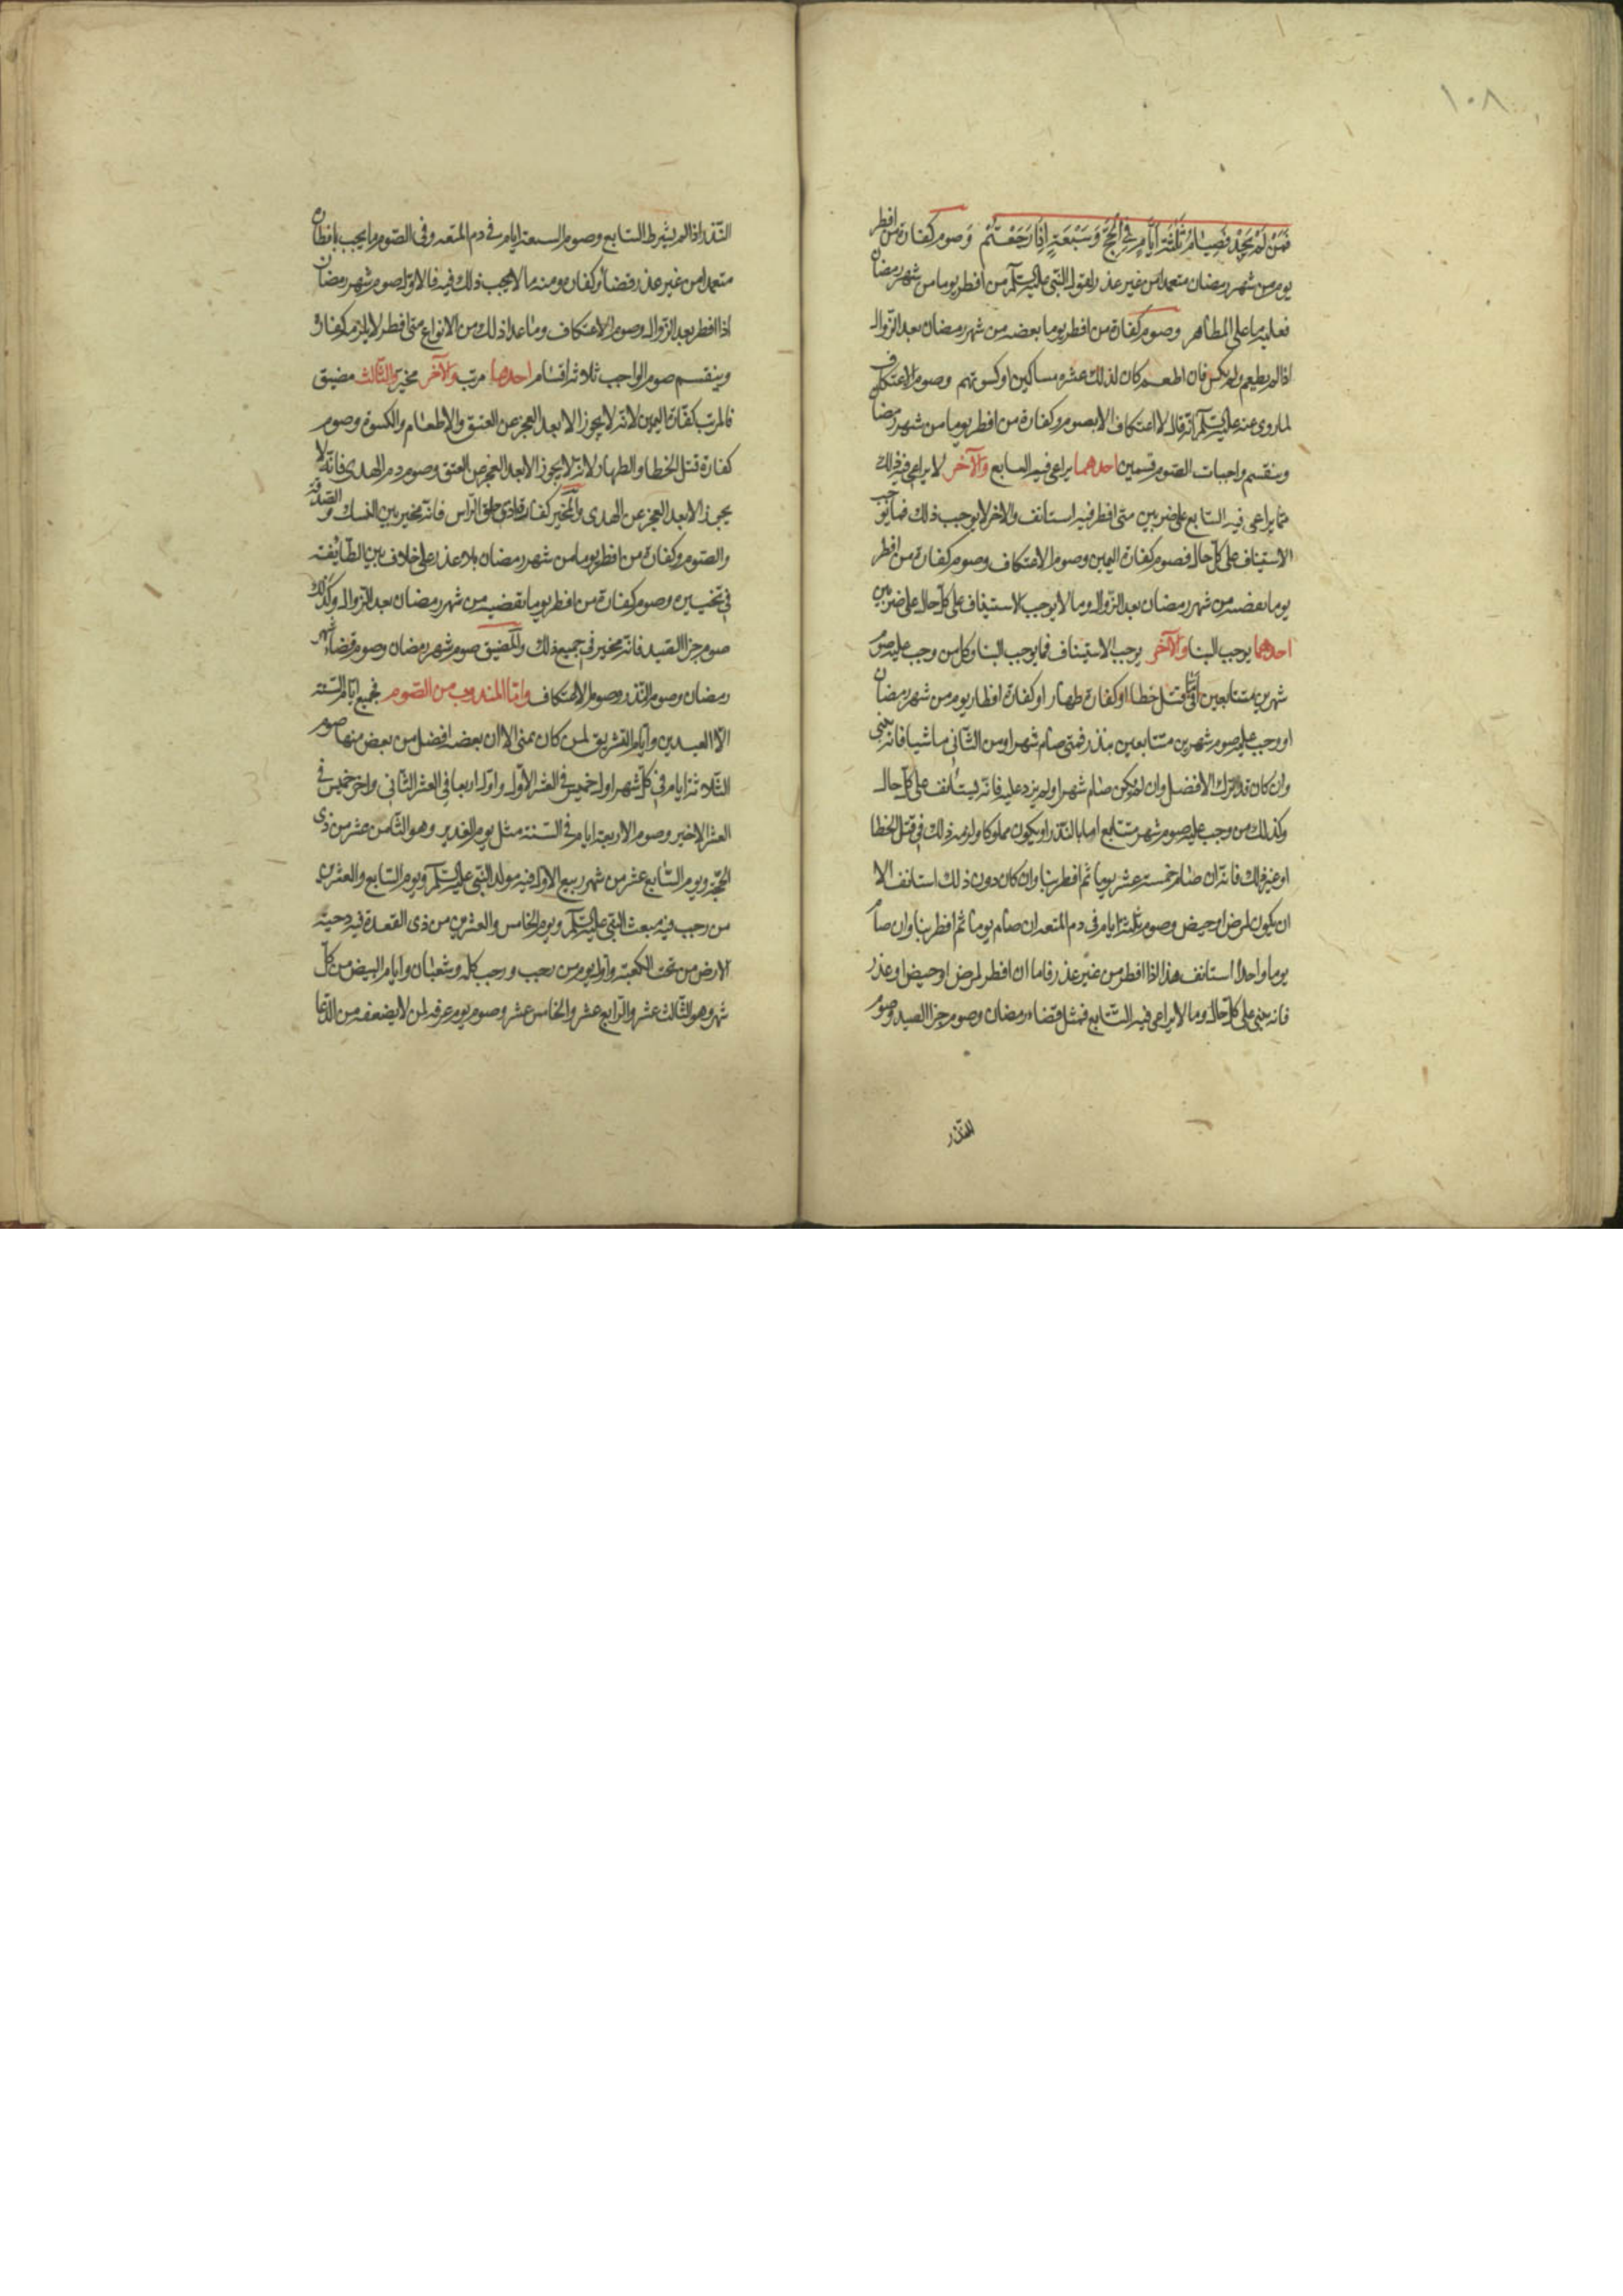 ١٠٨
فَمَنْ لَمْ يَجِدْ فَصِيَامُ ثَلٰثَةِ اَيَّامٍ فِي الْحَجِّ وَسَبْعَةٍ اِذَا رَجَعْتُمْ وَصوم كفارة من افطر
يوم من شهر رمضان متعمدا من غير عذر لقوله النبي عليه السلم من افطر يوما من شهر رمضان
فعليه ما على المظاهر وصوم كفارة من افطر يوما بعضه من شهر رمضان بعد الزوال
اذا لم يطيعم ولم يكس فان اطعم كان لذلك عشرة مساكين او كسوتهم وصوم الاعتكاف
لما روي عنه عليه السلم انه قال لا اعتكاف الا بصوم وكفارة من افطر يوما من شهر رمضا
وينقسم واجبات الصوم قسمين احدهما يراعى فيه التتابع والآخر لا يراعى فيه ذلك
فما يراعى فيه التتابع على ضربين متى افطر فيه استانف والاخر لا يوجب ذلك فما يوجب
الاستيناف على كل حال فصوم كفارة اليمين وصوم الاعتكاف وصوم كفارة من افطر
يوما بقضيه من شهر رمضان بعد الزوال وما لا يوجب الاستيناف على كل حال على ضربين
احدهما يوجب البنا والآخر يوجب الاستيناف فما يوجب البنا وكل من وجب عليه صوم
شهرين متتابعين اما في قتل خطا او كفارة ظهار او كفارة افطار يوم من شهر رمضان
او وجب عليه صوم شهرين متتابعين بنذر فمتى صام شهرا ومن الثاني ما شيا فانه يبنى
وان كان قد ترك الافضل وان لم يكن صام شهرا ولم يزد عليه فانه يستانف على كل حال
وكذلك من وجب عليه صوم شهر متتابع اما بالنذر او يكون مملوكا ولزمه ذلك في قتل الخطا
او غير ذلك فانه ان صام خمسة عشر يوما ثم افطر بنا وان كان دون ذلك استانف الا
ان يكون لمرض او حيض وصوم ثلثة ايام في دم المتعه ان صام يوما ثم افطر بنا وان صام
يوما واحدا استانف هذا اذا افطر من غير عذر فاما ان افطر لمرض او حيض او عذر
فانه يبنى على كل حال وما لا يراعى فيه التتابع فمثل قضاء رمضان وصوم جزا الصيد وصوم
النذر
النذر اذا لم يشرط التتابع وصوم السبعة ايام في دم المتعه وفي الصوم ما يجب بافطاره
متعمدا من غير عذر قضا وكفارة ومنه ما لا يجب ذلك فيه فالاول صوم شهر رمضان
اذا افطر بعد الزوال وصوم الاعتكاف وما عدا ذلك من الانواع متى افطر لا يلزمه كفارة
وينقسم صوم الواجب ثلاثة اقسام احدها مرتب والآخر مخير والثالث مضيق
فالمرتب كفارة اليمين لانه لا يجوز الا بعد العجز عن العتق والاطعام والكسوة وصوم
كفارة قتل الخطا والظهار لانه لا يجوز الا بعد العجز عن العتق وصوم دم الهدى فانه لا
يجوز الا بعد العجز عن الهدى والمخير كفارة اذى حلق الراس فانه مخير بين النسك والصدقة
والصوم وكفارة من افطر يوما من شهر رمضان بلا عذر على خلاف بين الطائفة
في تخييره وصوم كفارة من افطر يوما بقضيه من شهر رمضان بعد الزوال وكذلك
صوم جزا الصيد فانه مخير في جميع ذلك والمضيق صوم شهر رمضان وصوم قضا شهر
رمضان وصوم النذر وصوم الاعتكاف واما المندوب من الصوم فجميع ايام السنة
الا العيدين وايام التشريق لمن كان بمنى الا ان بعضه افضل من بعض منها صوم
الثلاثة ايام في كل شهر اول خميس في العشر الاول واول اربعا في العشر الثاني واخر خميس في
العشر الاخير وصوم الاربعة ايام في السنة مثل يوم الغدير وهو الثامن عشر من ذى
الحجة ويوم السابع عشر من شهر ربيع الاول فيه مولد النبي عليه السلم ويوم السابع والعشرين
من رجب فيه مبعث النبي عليه السلم ويوم الخامس والعشرين من ذى القعدة فيه دحيت
الارض من تحت الكعبة واول يوم من رجب ورجب كله وشعبان وايام البيض من كل
شهر وهو الثالث عشر والرابع عشر والخامس عشر وصوم يوم عرفه لمن لا يضعفه من الدعا